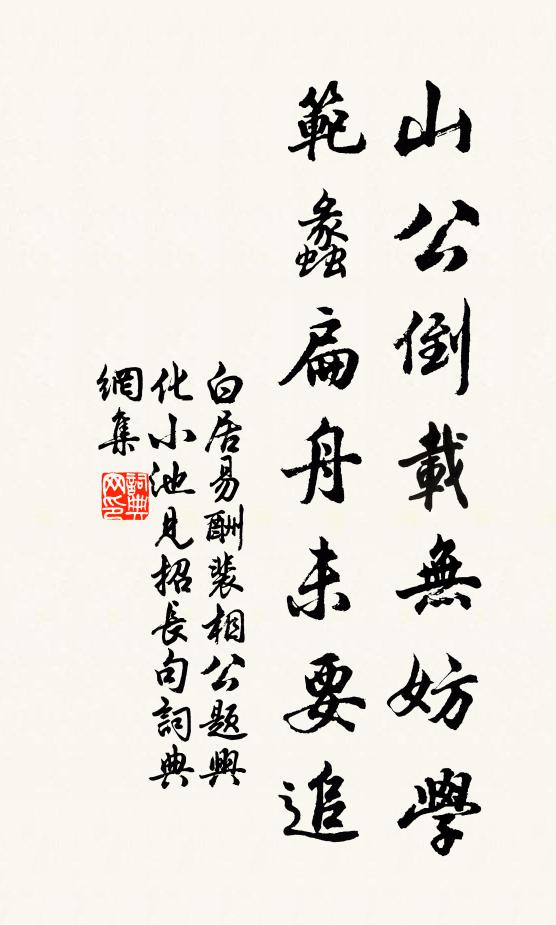 山公倒載無妨學
範蠡扁舟未要追
白居易酬裴相公題興
化小池見招長句詞典
網集
詞典
网印